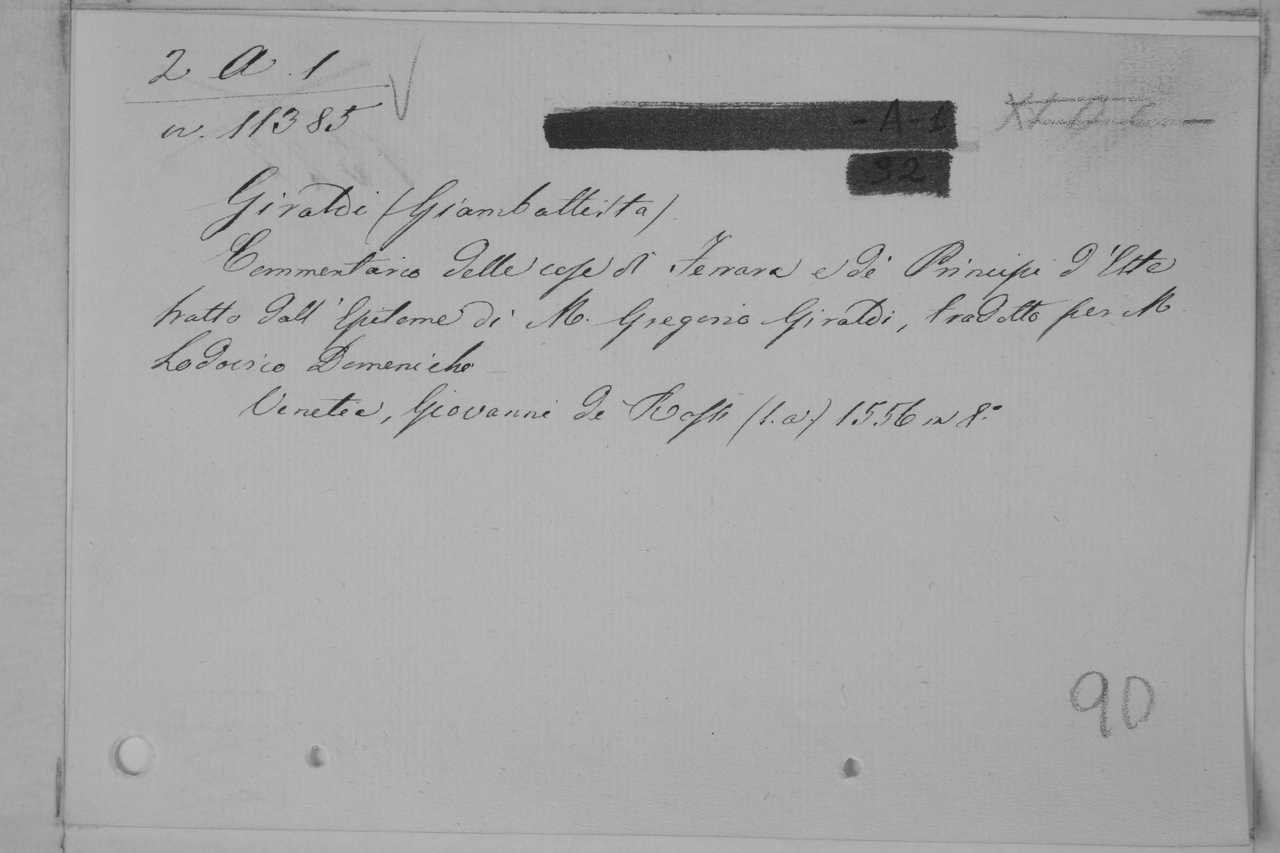 2 A. 1
n. 11385
-A-1
92
Giraldi (Giambattista)
Commentario delle cose di Ferrara e de' Principi d'Este
tratto dall' Epitome di M. Gregorio Giraldi, tradotto per M
Lodovico Domenichi
Venetia, Giovanni de' Rossi (s.a.) 1556 in 8.°
90